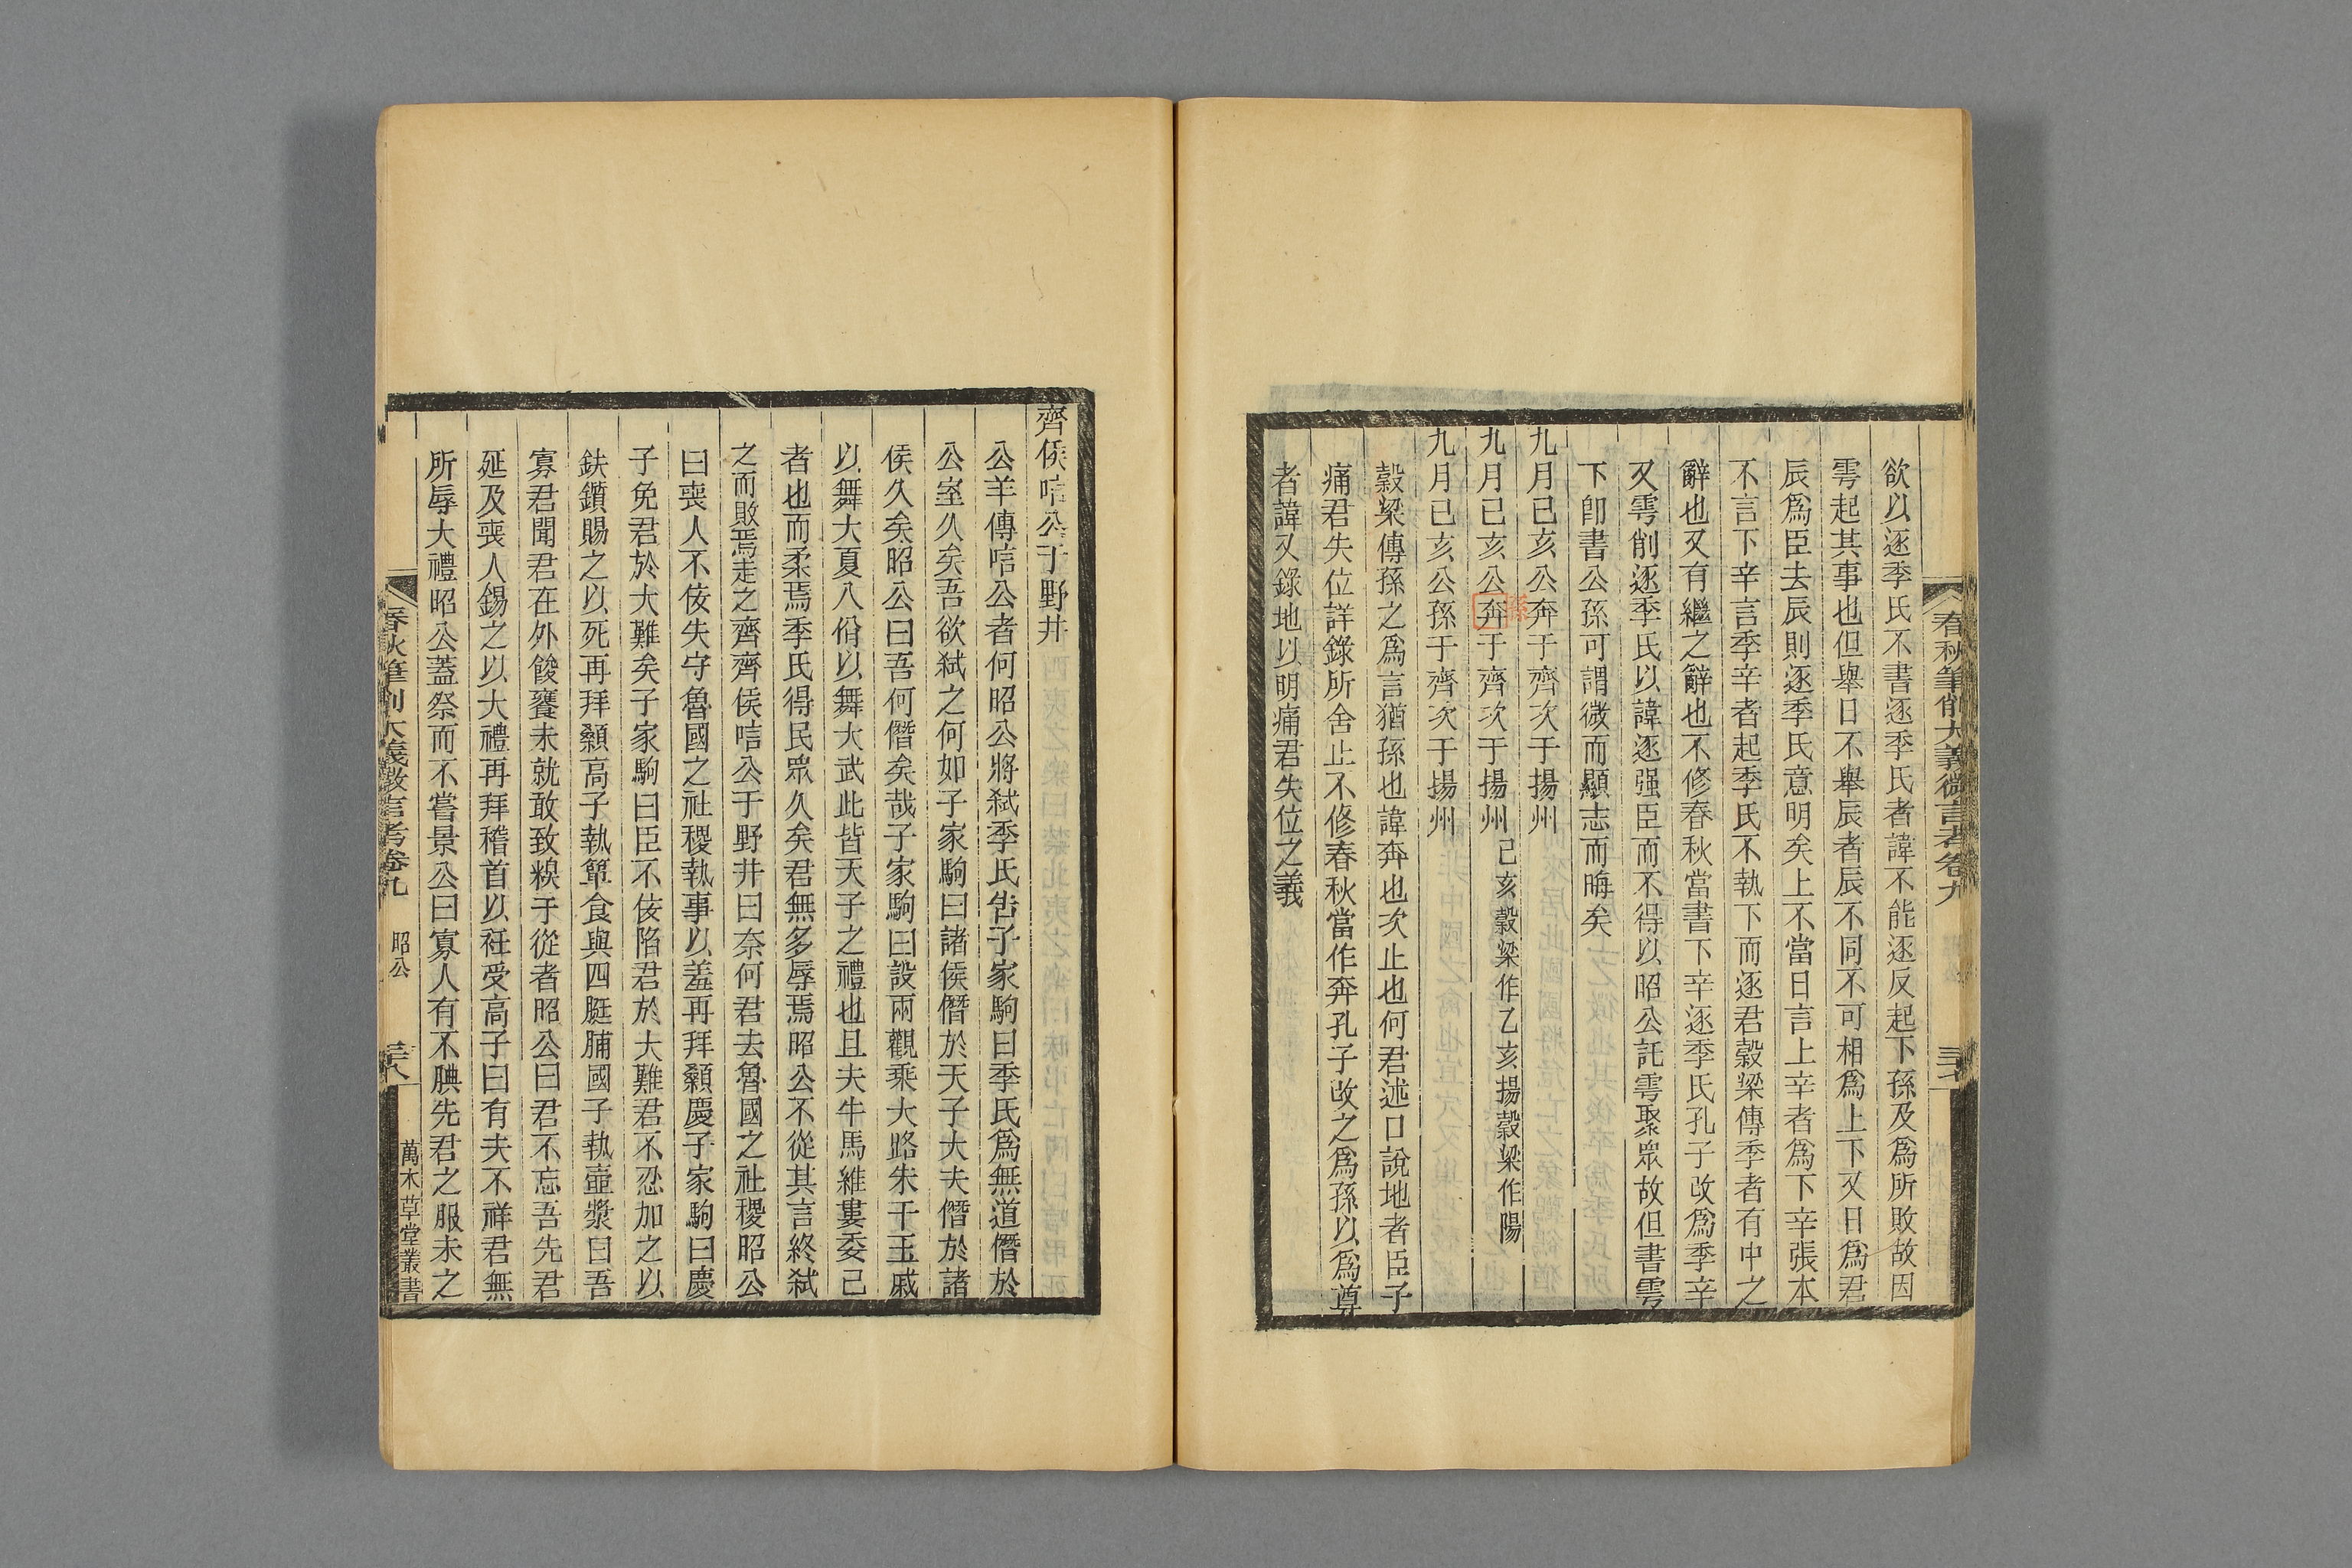 春秋筆削大義微言考卷九
三十七
欲以逐季氏不書逐季氏者諱不能逐反起下孫及爲所敗故因
雩起其事也但舉日不舉辰者辰不同不可相爲上下又日爲君
辰爲臣去辰則逐季氏意明矣上不當日言上辛者爲下辛張本
不言下辛言季辛者起季氏不執下而逐君穀梁傳季者有中之
辭也又有繼之辭也不修春秋當書下辛逐季氏孔子改爲季辛
又雩削逐季氏以諱逐强臣而不得以昭公託雩聚眾故但書雩
下卽書公孫可謂微而顯志而晦矣
九月己亥公奔于齊次于揚州
九月己亥公奔于齊次于揚州
孫
九月己亥公孫于齊次于揚州
己亥穀梁作乙亥揚穀梁作陽
穀梁傳孫之爲言猶孫也諱奔也次止也何君述口說地者臣子
痛君失位詳錄所舍止不修春秋當作奔孔子改之爲孫以爲尊
者諱又錄地以明痛君失位之義
齊侯唁公于野井
公羊傳唁公者何昭公將弒季氏告子家駒曰季氏爲無道僭於
公室久矣吾欲弒之何如子家駒曰諸侯僭於天子大夫僭於諸
侯久矣昭公曰吾何僭矣哉子家駒曰設兩觀乘大路朱干玉戚
以舞大夏八佾以舞大武此皆天子之禮也且夫牛馬維婁委己
者也而柔焉季氏得民眾久矣君無多辱焉昭公不從其言終弒
之而敗焉走之齊齊侯唁公于野井曰奈何君去魯國之社稷昭公
曰喪人不佞失守魯國之社稷執事以羞再拜顙慶子家駒曰慶
子免君於大難矣子家駒曰臣不佞陷君於大難君不忍加之以
鈇鑕賜之以死再拜顙高子執簞食與四脡脯國子執壺漿曰吾
寡君聞君在外餕饔未就敢致糗于從者昭公曰君不忘吾先君
延及喪人錫之以大禮再拜稽首以衽受高子曰有夫不祥君無
所辱大禮昭公蓋祭而不嘗景公曰寡人有不腆先君之服未之
春秋筆削大義微言考卷九
昭公
三十八
萬木草堂叢書